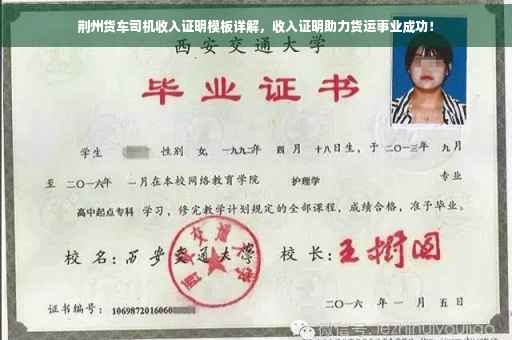 荆州货车司机收入证明模板详解，收入证明助力货运事业成功！
西安交通大学
毕业证书
学生 性别 女，一九九二年 四月 十八日生，于 二〇一三年 九月
至 二〇一六年 一月在本校网络教育学院 护理学 专业
高中起点专科 学习，修完教学计划规定的全部课程，成绩合格，准予毕业。
校名：西安交通大学 校长：王树国
西安交通大学
证书编号：1069872016060
二〇一六年一月五日
微信号: jezhihuiyoujiao